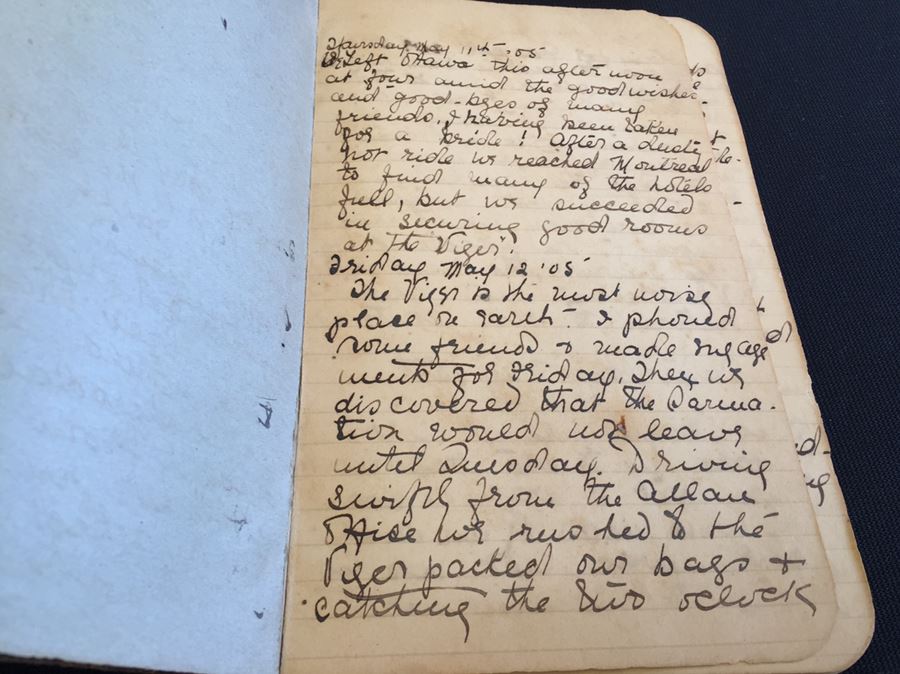 Thursday May 11th '05
We Left Ottawa this afternoon
at four amid the good wishes
and good-byes of many
friends, I having been taken
for a bride! After a dusty
hot ride we reached Montreal
to find many of the hotels
full, but we succeeded
in securing good rooms
at the "Viger".
Friday May 12 '05
The Viger is the most noisy
place on earth - I phoned
some friends + made engage
ments for Friday. Then we
discovered that the Sarma-
tion would not leave
until Tuesday. Driving
swiftly from the Allan
Office we rushed to the
Viger packed our bags +
catching the two oclock